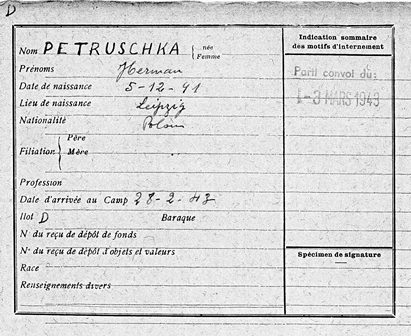 D
Nom PETRUSCHKA { née Femme
Indication sommaire
des motifs d'internement
Prénoms Herman
Parti convoi du:
- 3 MARS 1943
Date de naissance 5-12-91
Lieu de naissance Leipzig
Nationalité Polon
Filiation { Père
Mère
Profession
Date d'arrivée au Camp 28-2-43
Ilot D Baraque
N du reçu de dépôt de fonds
N° du reçu de dépôt d'objets et valeurs
Spécimen de signature
Race
Renseignements divers